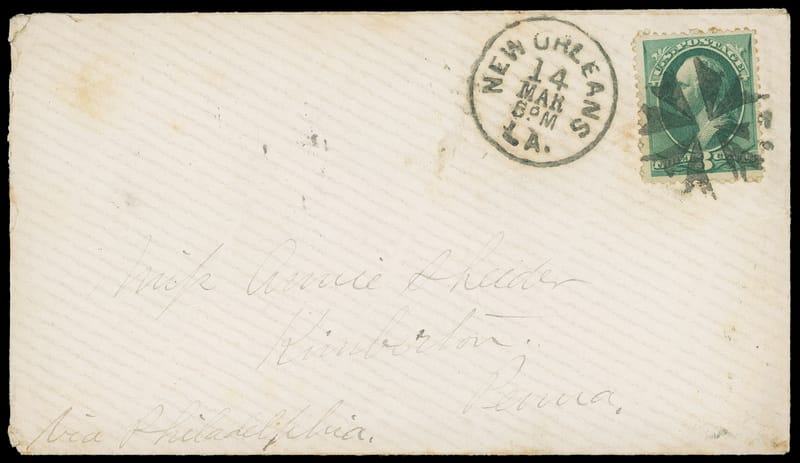 NEW ORLEANS
14
MAR
6PM
LA.
U.S. POSTAGE
3
Miss Annie Sheeder
Kimberton.
Penna.
Via Philadelphia.